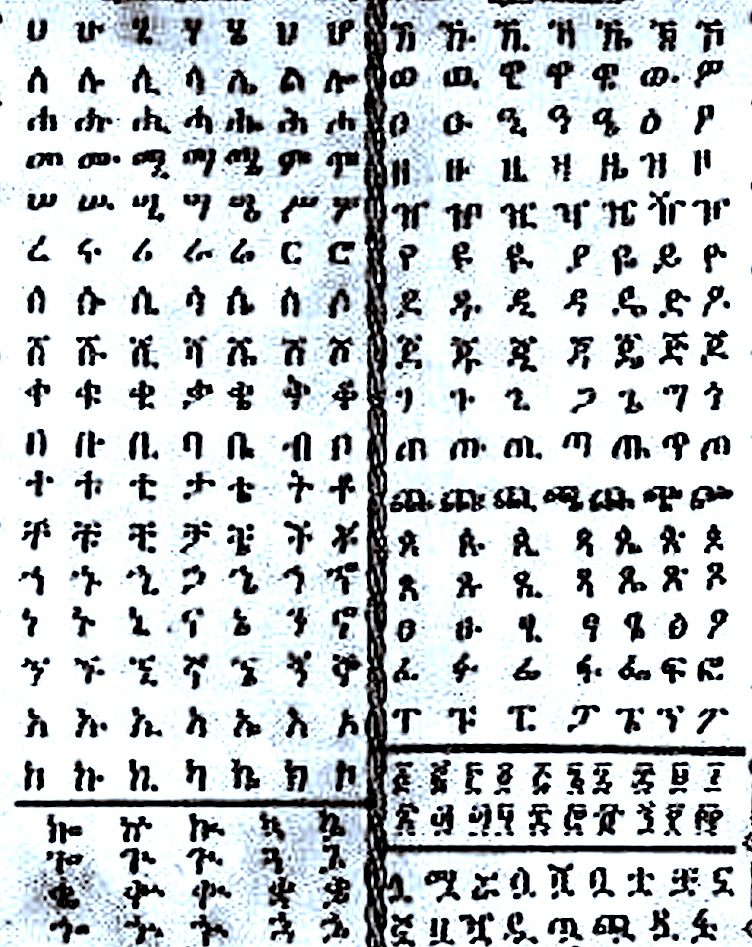 ሀ ሁ ሂ ሃ ሄ ህ ሆ
ለ ሉ ሊ ላ ሌ ል ሎ
ሐ ሑ ሒ ሓ ሔ ሕ ሖ
መ ሙ ሚ ማ ሜ ም ሞ
ሠ ሡ ሢ ሣ ሤ ሥ ሦ
ረ ሩ ሪ ራ ሬ ር ሮ
ሰ ሱ ሲ ሳ ሴ ስ ሶ
ሸ ሹ ሺ ሻ ሼ ሽ ሾ
ቀ ቁ ቂ ቃ ቄ ቅ ቆ
በ ቡ ቢ ባ ቤ ብ ቦ
ተ ቱ ቲ ታ ቴ ት ቶ
ቸ ቹ ቺ ቻ ቼ ች ቾ
ኀ ኁ ኂ ኃ ኄ ኅ ኆ
ነ ኑ ኒ ና ኔ ን ኖ
ኘ ኙ ኚ ኛ ኜ ኝ ኞ
አ ኡ ኢ ኣ ኤ እ ኦ
ከ ኩ ኪ ካ ኬ ክ ኮ
ኸ ኹ ኺ ኻ ኼ ኽ ኾ
ወ ዉ ዊ ዋ ዌ ው ዎ
ዐ ዑ ዒ ዓ ዔ ዕ ዖ
ዘ ዙ ዚ ዛ ዜ ዝ ዞ
ዠ ዡ ዢ ዣ ዤ ዥ ዦ
የ ዩ ዪ ያ ዬ ይ ዮ
ደ ዱ ዲ ዳ ዴ ድ ዶ
ጀ ጁ ጂ ጃ ጄ ጅ ጆ
ገ ጉ ጊ ጋ ጌ ግ ጎ
ጠ ጡ ጢ ጣ ጤ ጥ ጦ
ጨ ጩ ጪ ጫ ጬ ጭ ጮ
ጰ ጱ ጲ ጳ ጴ ጵ ጶ
ጸ ጹ ጺ ጻ ጼ ጽ ጾ
ፀ ፁ ፂ ፃ ፄ ፅ ፆ
ፈ ፉ ፊ ፋ ፌ ፍ ፎ
ፐ ፑ ፒ ፓ ፔ ፕ ፖ
፩ ፪ ፫ ፬ ፭ ፮ ፯ ፰ ፱ ፲
፳ ፴ ፵ ፶ ፷ ፸ ፹ ፺ ፻ ፼
ሏ ሟ ሯ ሷ ሿ ቧ ቷ ቿ ኗ
ኟ ዟ ዧ ዷ ጧ ጯ ጿ ፏ